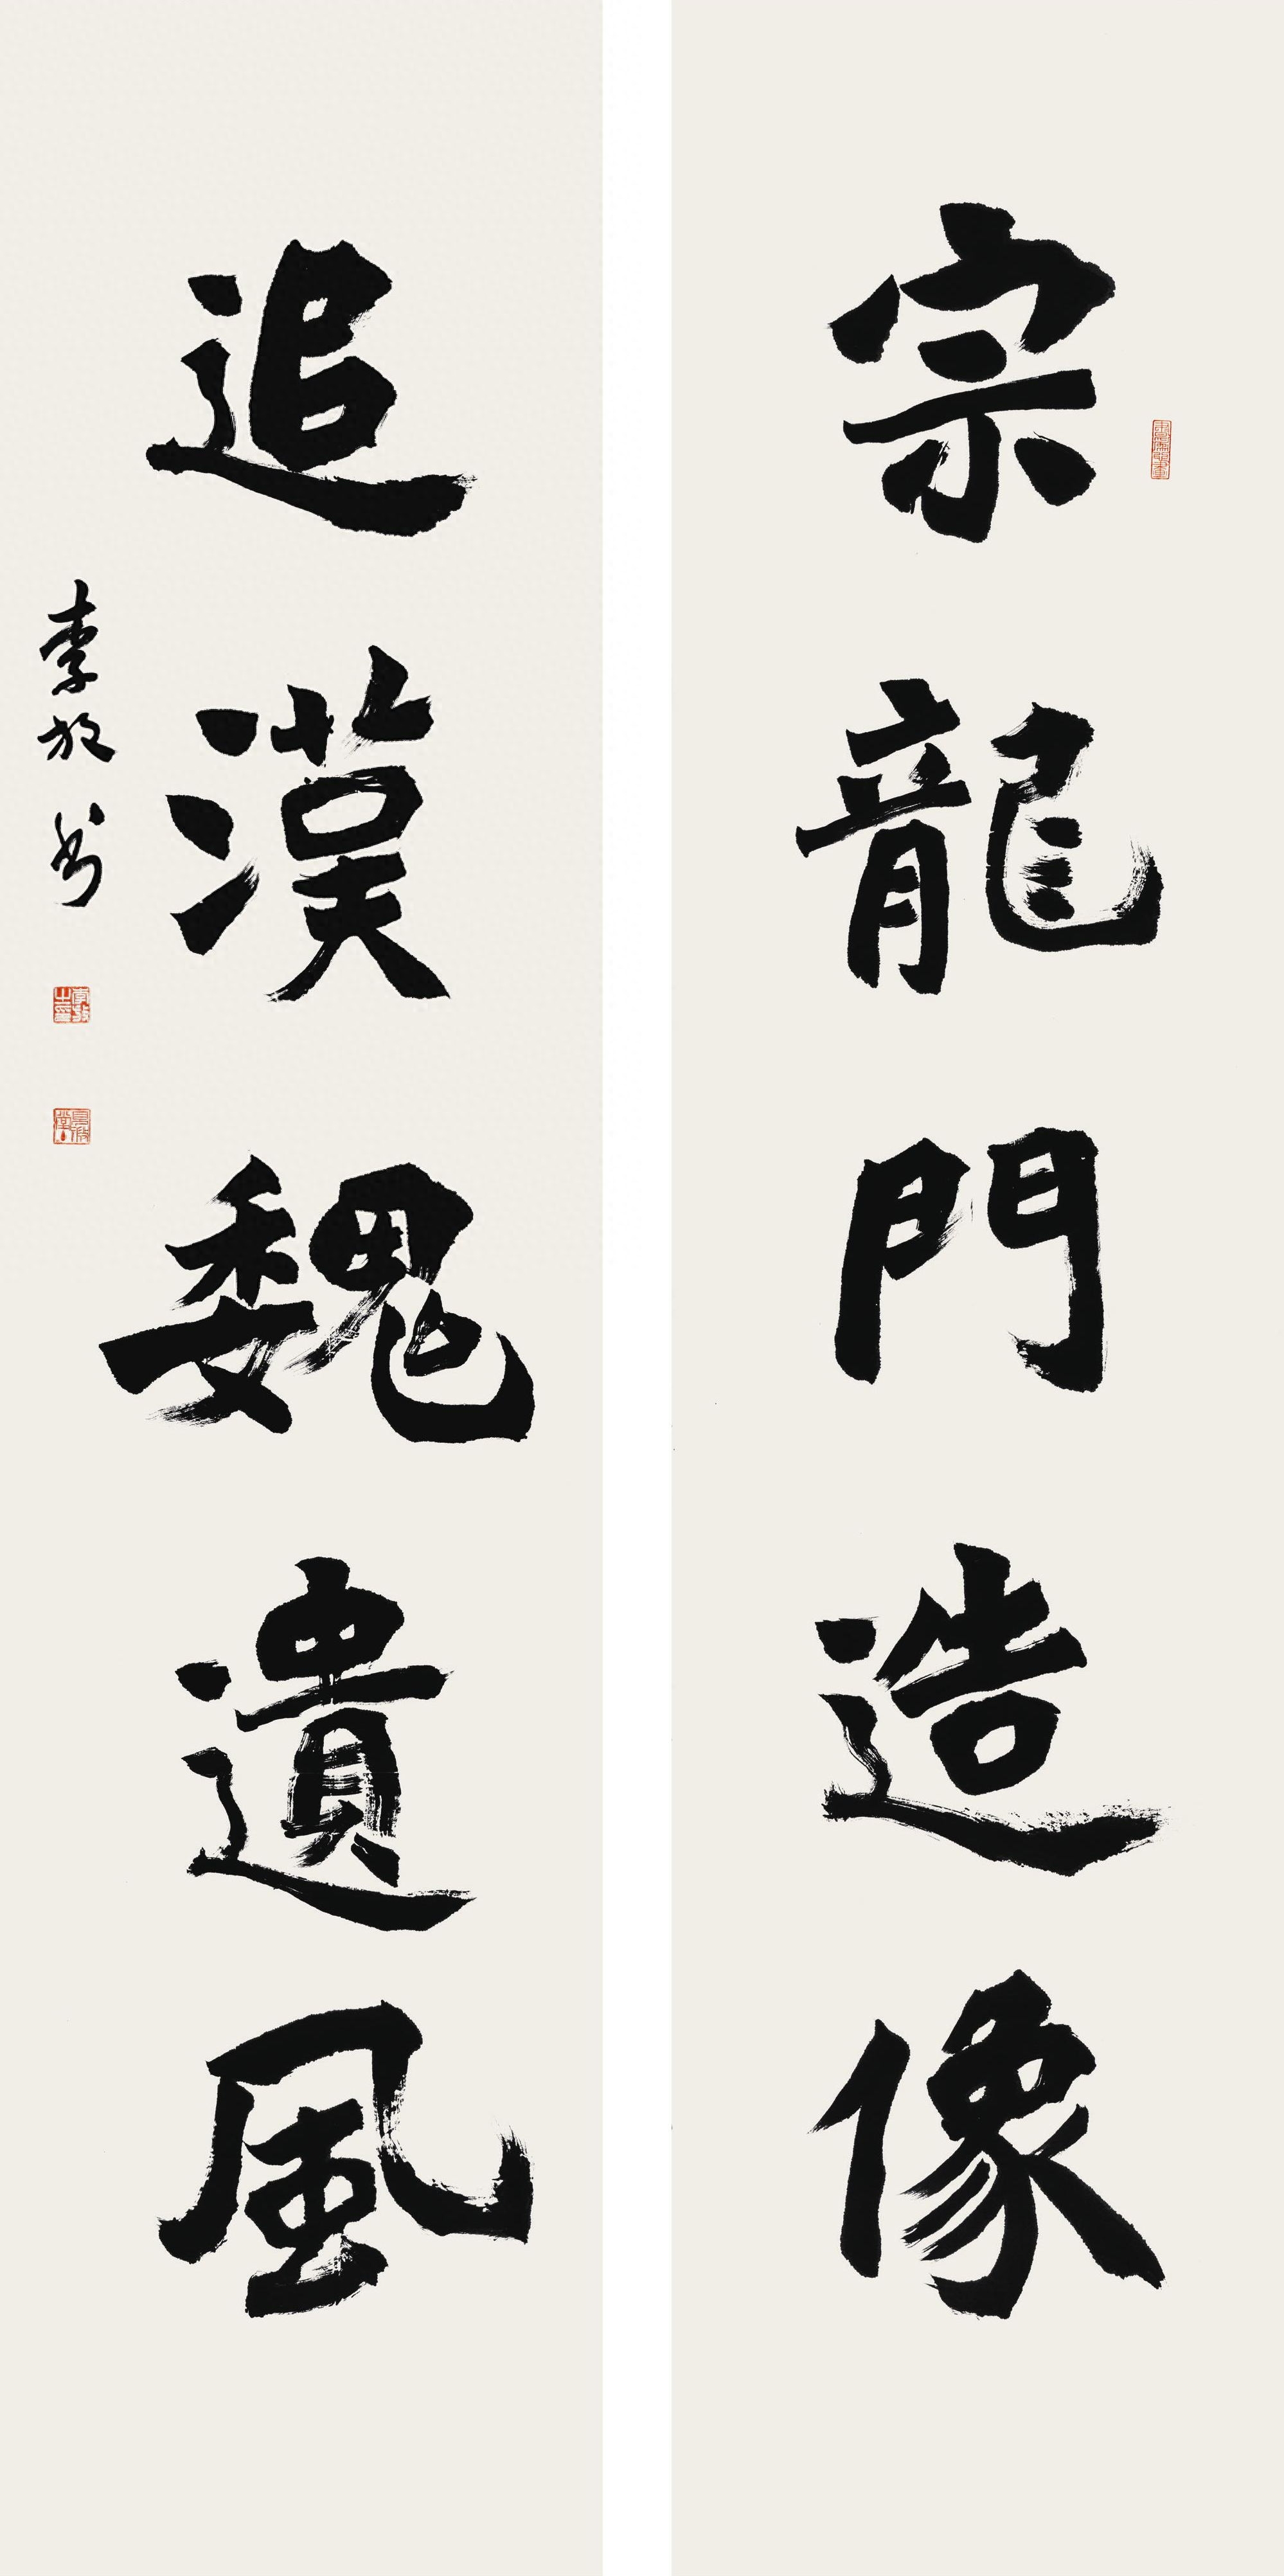 宗龍門造像
追漢魏遺風
李放书